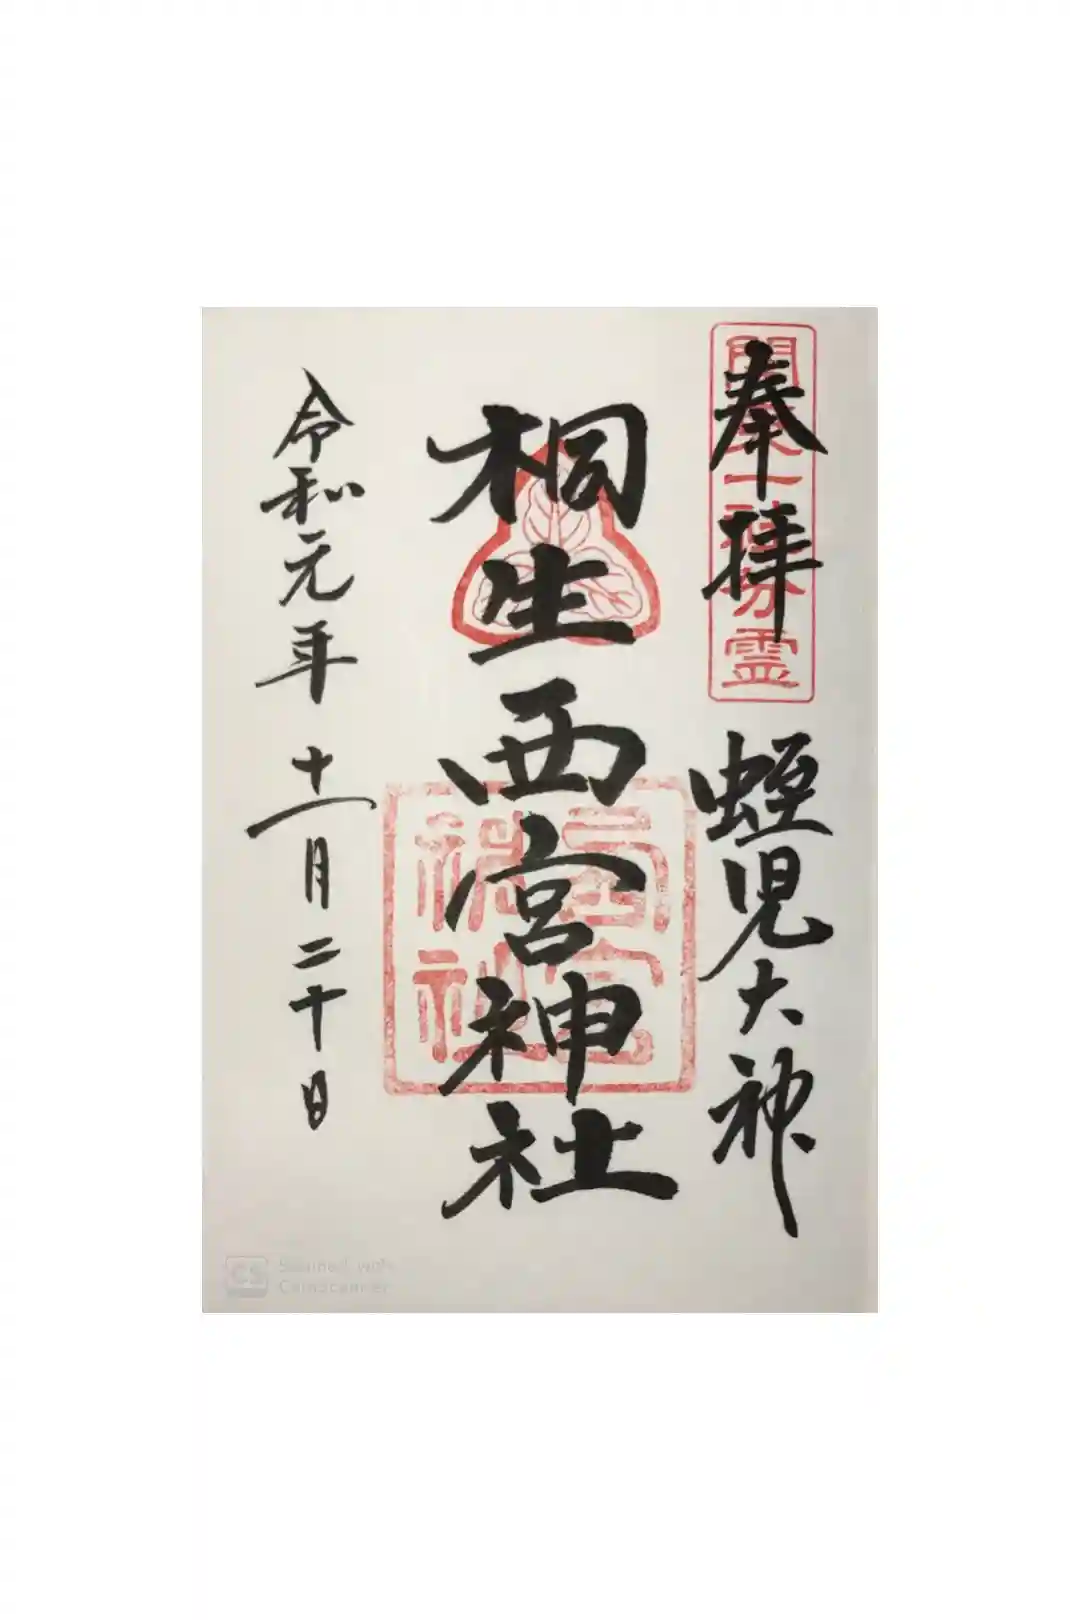 奉拝
蛭児大神
桐生西宮神社
令和元年十一月二十日
西宮神社
CS Scanned with
CamScanner